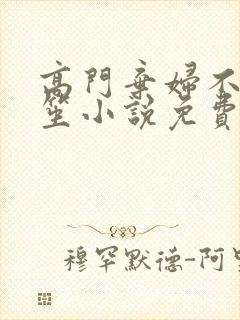 高門棄婦不
笙小說免費
穆罕默德-阿